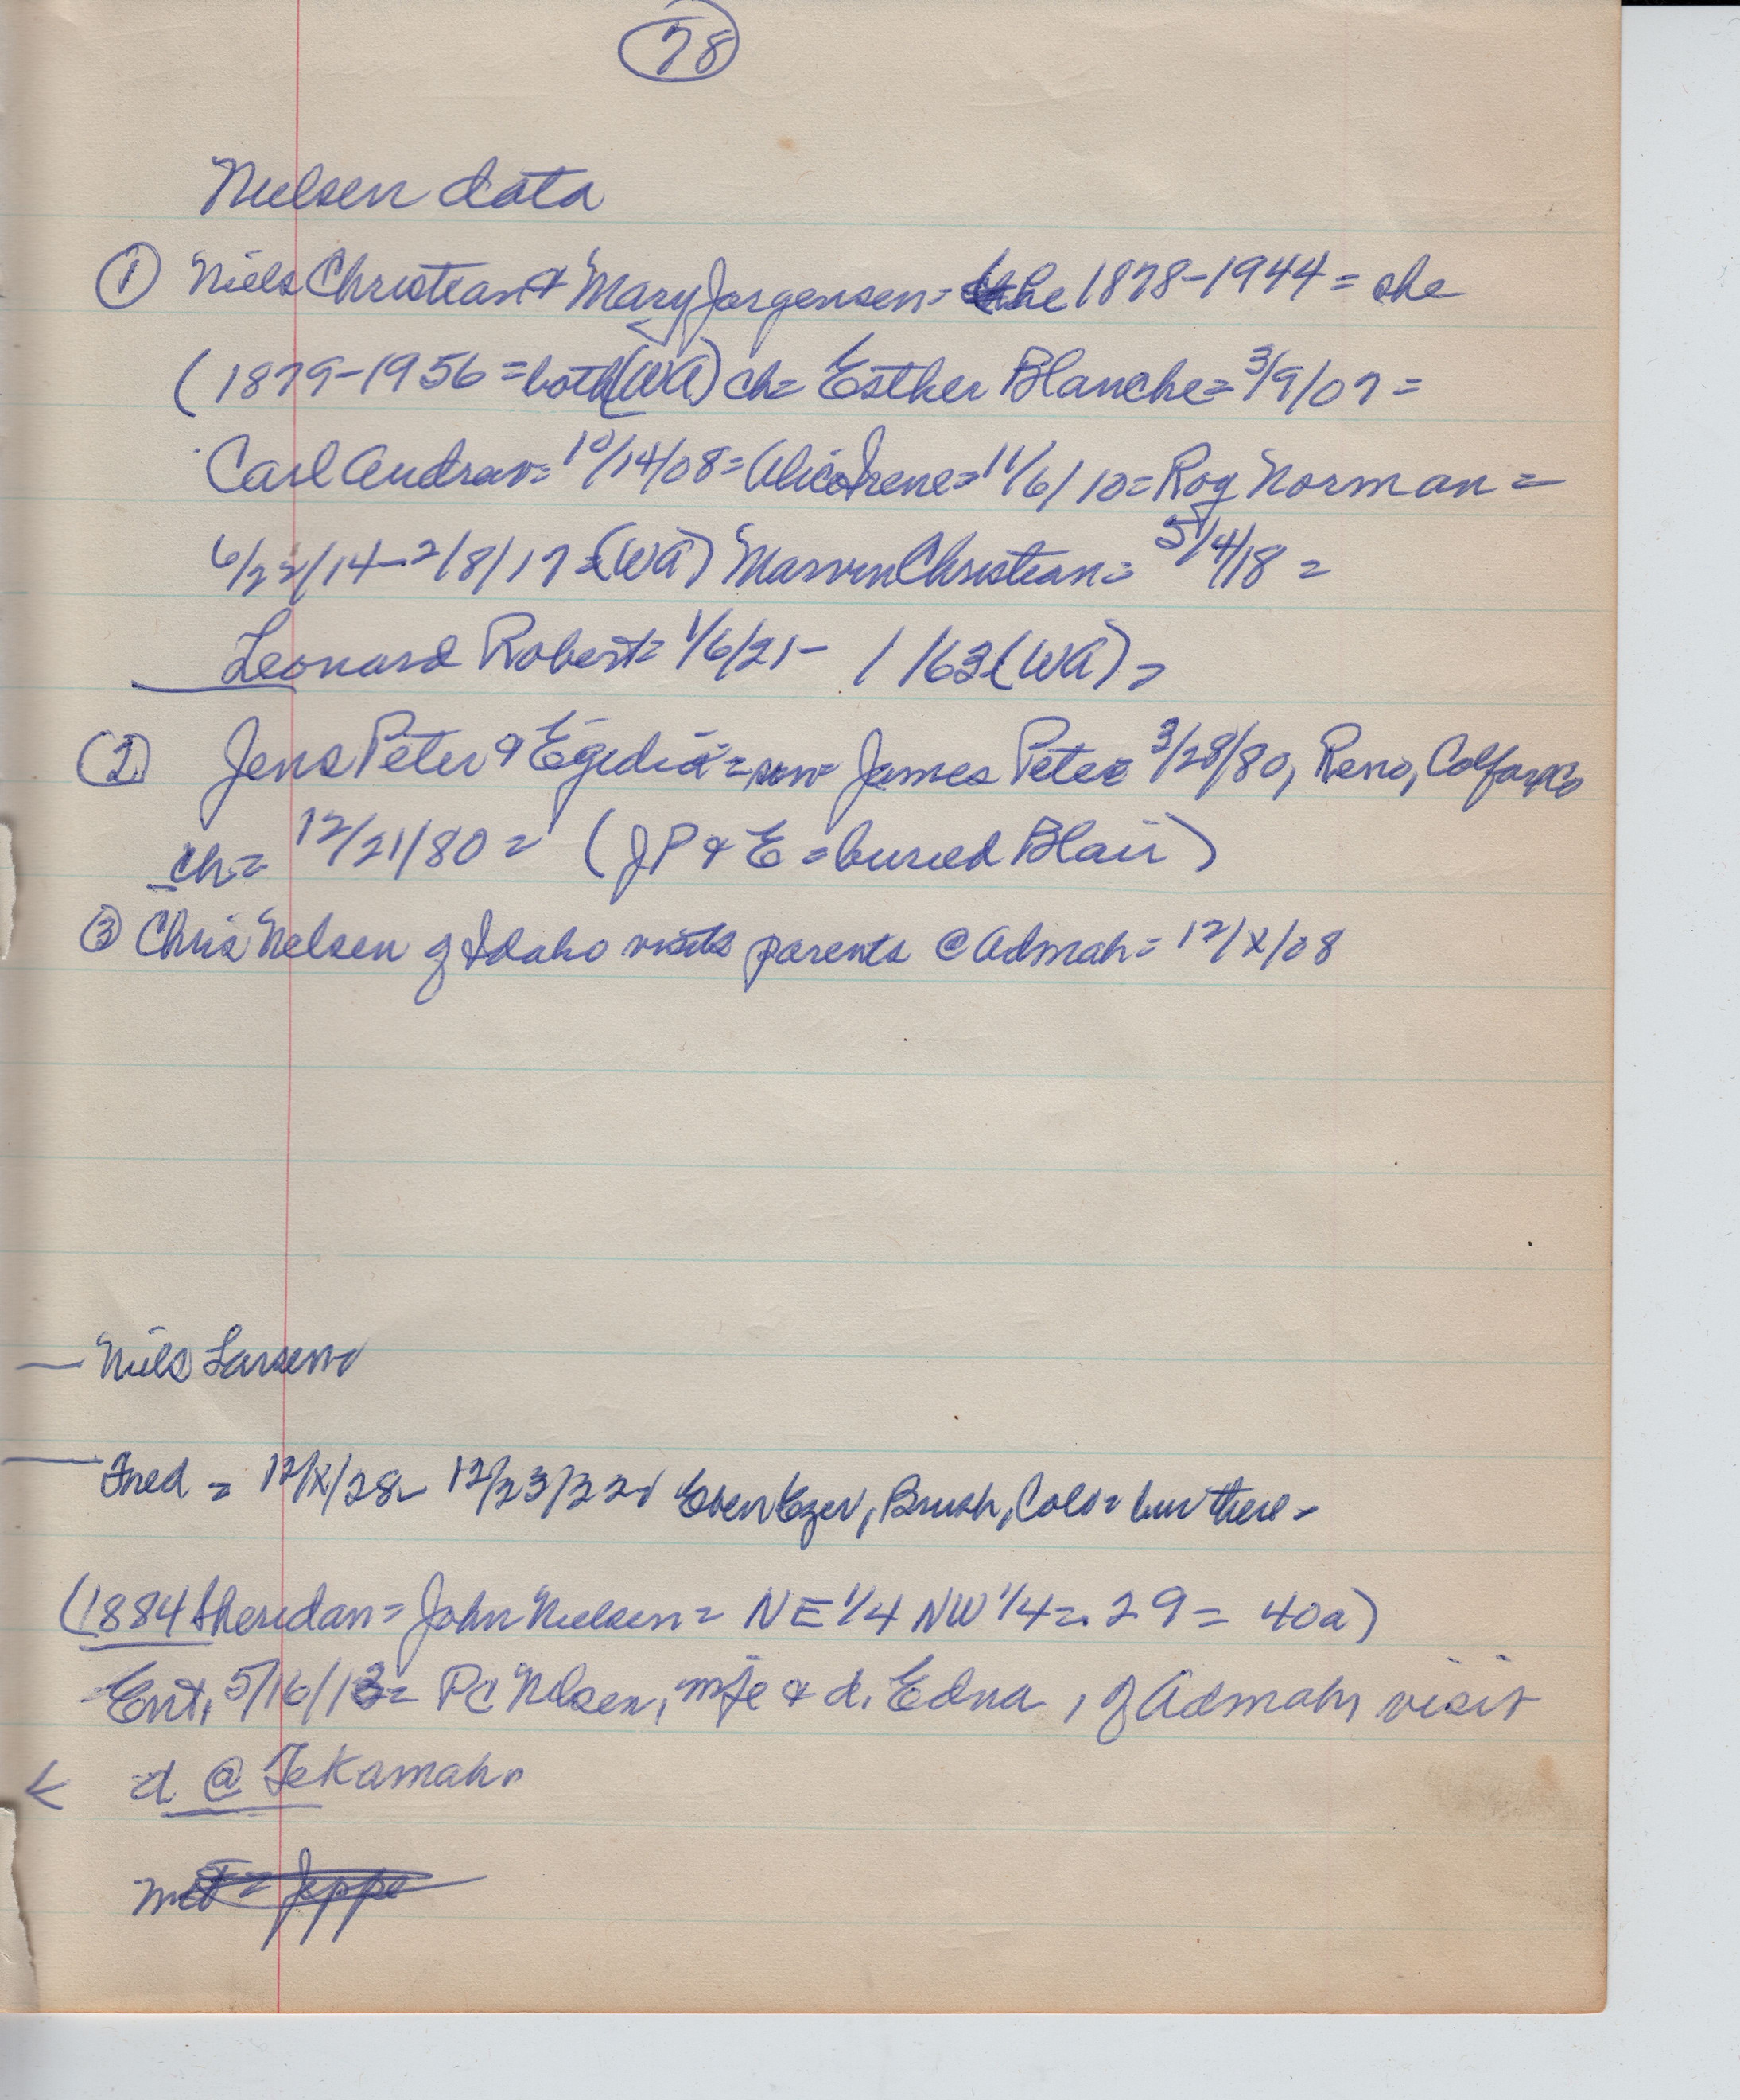 78
Nielsen data
① Niels Christian & Mary Jorgensen = he 1878-1944 = she
(1879-1956 = both (WA) ch = Esther Blanche = 3/9/07 =
Carl Andrew = 10/14/08 = Alice Irene = 11/6/10 = Roy Norman =
6/22/14-2/8/17 = (WA) Marvin Christian = 5/4/18 =
Leonard Robert = 1/6/21 - / /63 (WA) =
(2) Jens Peter & Egidia = son = James Peter 3/28/80, Reno, Colfax Co
ch = 12/21/80 = (JP & E = buried Blair)
③ Chris Nelsen of Idaho visits parents @ Admah = 12/X/08
— Niels Larsen
— Fred = 12/X/28 - 12/23/32 Eben Ezer, Brush, Colo = bur there =
(1884 Sheridan = John Nielsen = NE 1/4 NW 1/4 = 29 = 40a)
Ent, 5/16/13 = PC Nelsen, wife & d. Edna, of Admah, visit
< d @ Tekamah
Jeppe